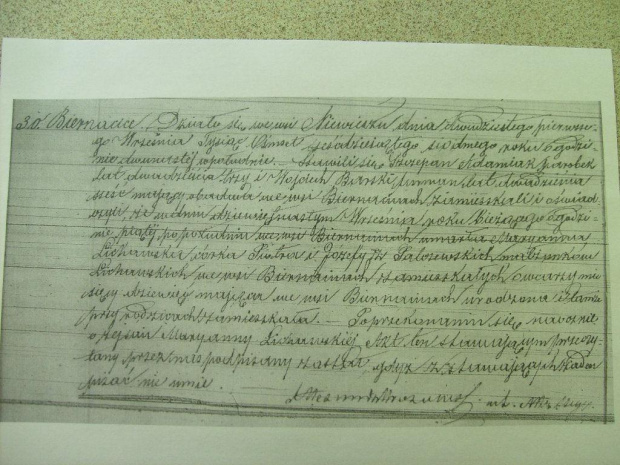 30. Biernacice. Działo się we wsi Niewieszu dnia dwudziestego pierwsze-
go Września Tysiąc Ośmset sześdziesiątego siódmego roku o godzi-
nie dwunastej w południe. Stawili się Szczepan Adamiak parobek
lat dwadzieścia trzy i Wojciech furman lat dwadzieścia
sześć mający obydwaj we wsi Biernacicach zamieszkali i oświad-
czyli że w dniu dziewiętnastym Września roku bieżącego o godzi-
nie piątej po południu we wsi Biernacicach umarła Maryanna
Licharska córka Piotra i Józefy z małżonków
Licharskich we wsi Biernacicach zamieszkałych owczarzy mie-
sięcy dziewięć mająca we wsi Biernacicach urodzona i tamże
przy rodzicach zamieszkała. — Po przekonaniu się naocznie
o zejściu Maryanny Licharskiej Akt ten stawającym przeczy-
tany przez nas podpisany został gdyż z stawających żaden
pisać nie umie.